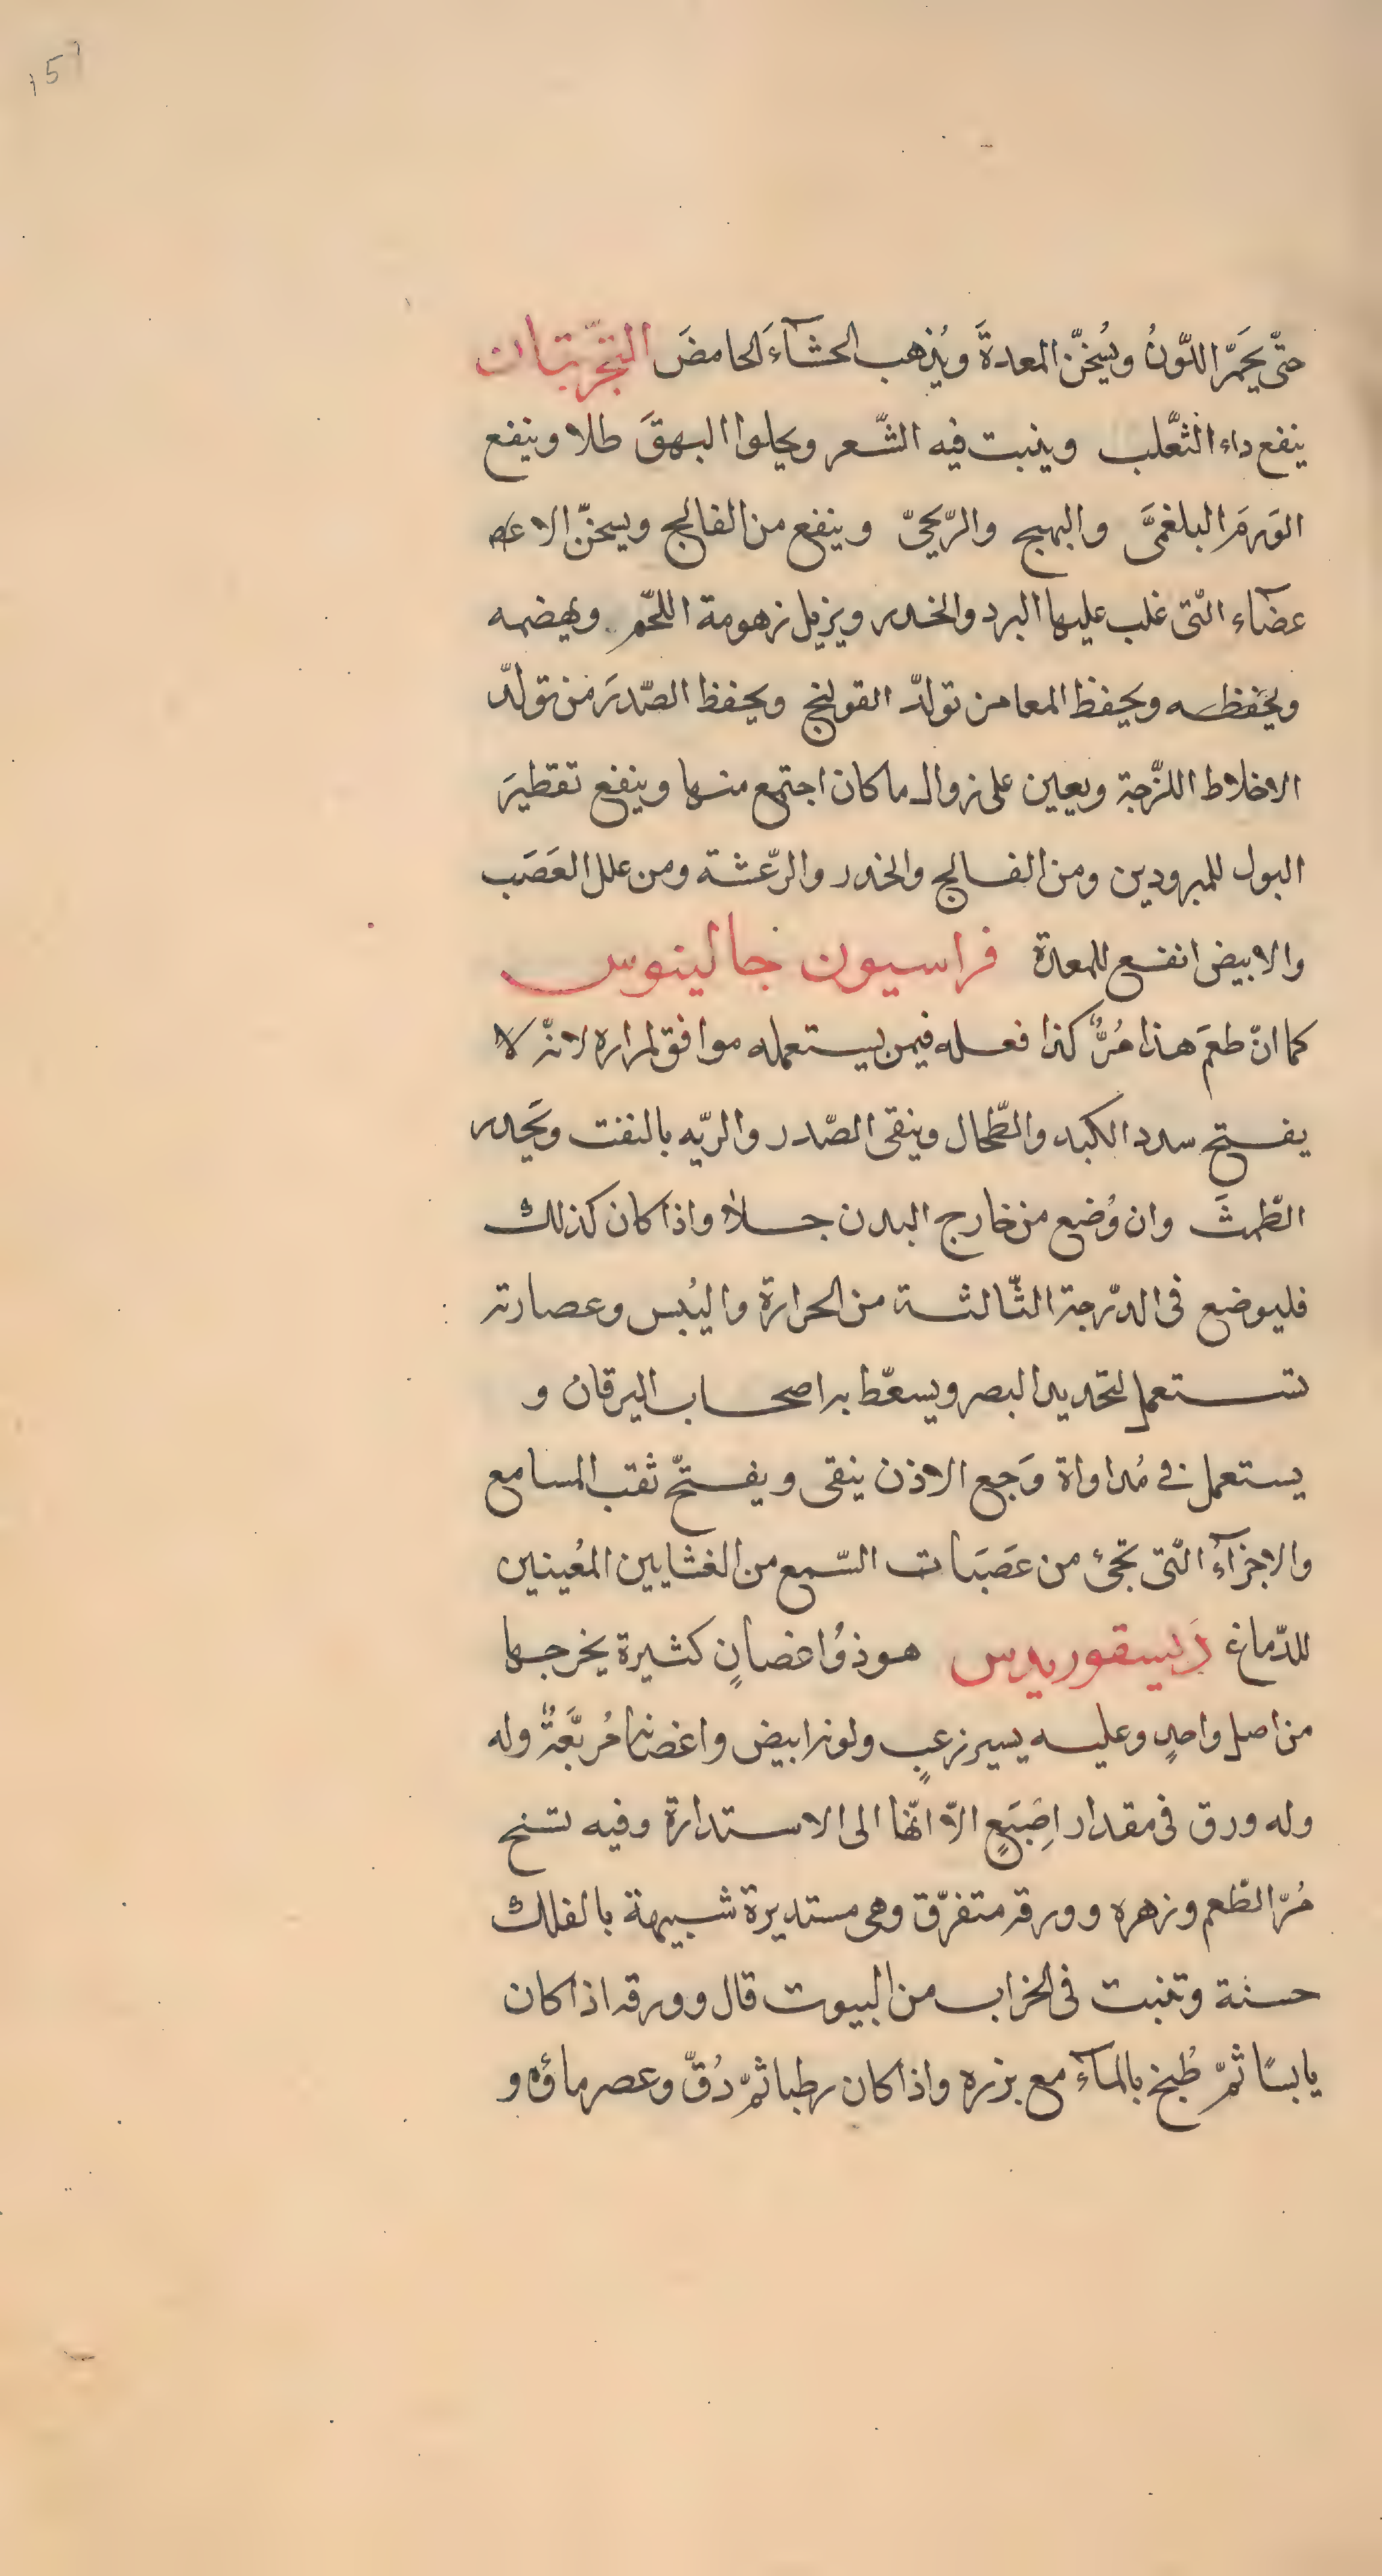 151
حتّى يحَمّر اللّونُ ويُسخنّ المعدةَ ويُذهب الحشآءَ الحامضَ التجّربتان
ينفع داء الثعّلب وينبت فيه الشّعر ويجلوا البهقَ طلا وينفع
الوَرمَ البلغمىَّ والبهيج والرّيحىّ وينفع من الفالج ويسخنّ الاعضـ
عضآء الّتى غلب عليها البرد والخدر ويزيل زهومة اللحّم ويهضمه
ويحَفظه ويحفظ المعا من تولدّ القولنج ويحفظ الصّدرَ من تولدّ
الاخلاط اللزّجة ويعين على زوال ما كان اجتمع منها وينفع تقطيرَ
البول للمبرودين ومن الفالج والخدر والرّعشة ومن علل العَصَب
والابيض انفع للمعدة فراسيون جالينوس
كما انّ طعمَ هذا مُرٌّ كذا فعله فيمن يستعمله موافق لمراره لانّه لا
يفتح سدد الكبد والطّحال وينقى الصّدر والريّه بالنفث ويَحدر
الطّمثَ وان وُضع من خارج البدن جلا واذا كان كذلك
فليوضع فى الدرّجة الثّالثة من الحرارة واليُبس وعصارته
تستعمل لتحّديد البصر ويسعّط به اصحاب اليرقان و
يستعمل فى مُداواة وَجع الاذن ينقى ويفتحّ ثقب المسامع
والاجزآءُ الّتى تجئ من عَصَبَات السّمع من الغشايين المُعينين
للدّماغ دَيسقوريدس هو ذوُ اغصانٍ كثيرة يخرجها
من اصل واحدٍ وعليه يسير زعبٍ ولونه ابيض واغصانها مُربَّعَةٌ وله
وله ورق فى مقدار اِصْبَعٍ الاّ انّها الى الاستدارة وفيه تشنج
مُرّ الطّعم وزهره وورقه متفرّق وهى مستديرة شبيهة بالفلك
حسنة وتنبت فى الخراب من البيوت قال وورقه اذا كان
يابسًا ثمّ طُبخ بالمآء مع بزره واذا كان رطبا ثمّ دُقّ وعصر ماؤه و